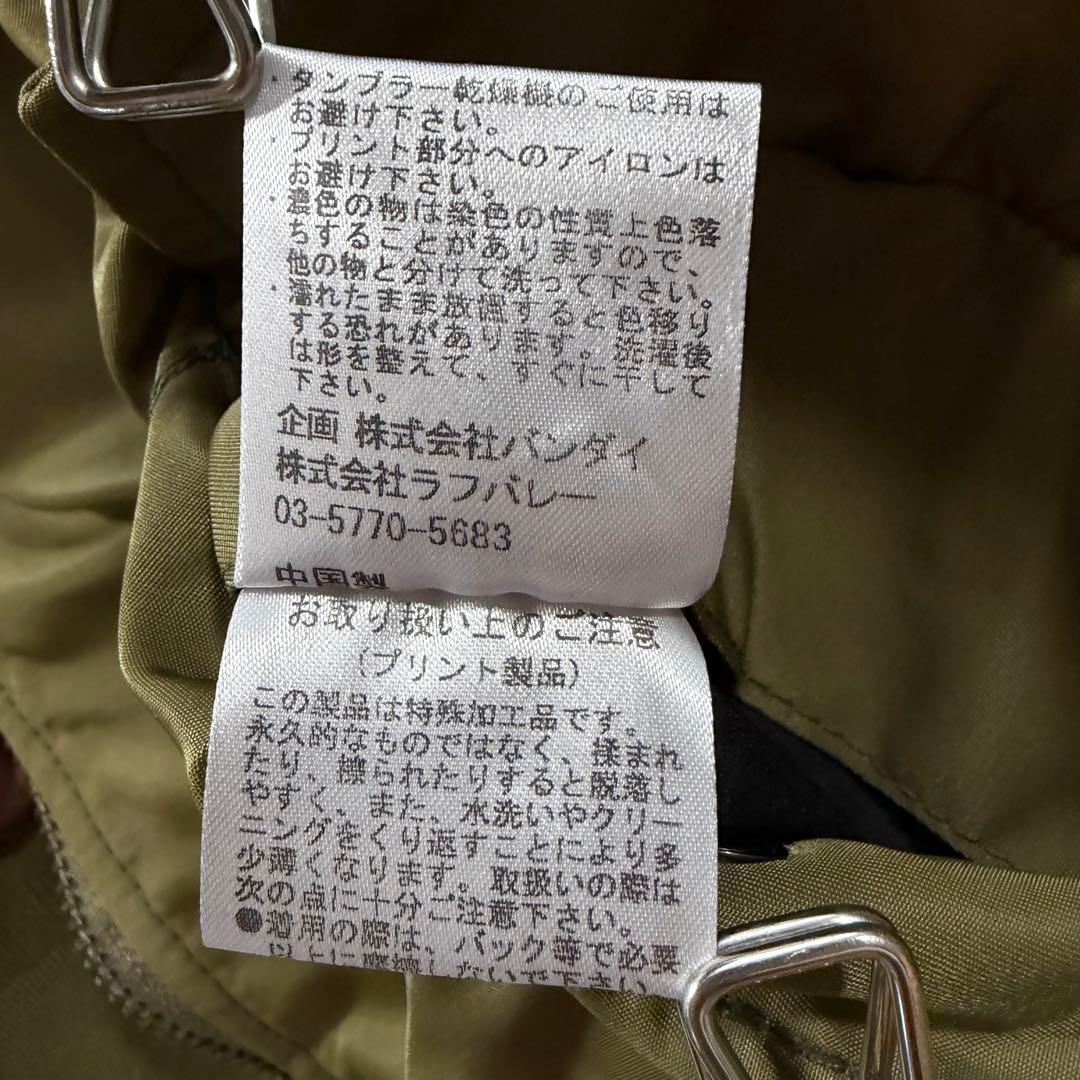 ・タンブラー乾燥機のご使用は
お避け下さい。
プリント部分へのアイロンは
お避け下さい。
・濃色の物は染色の性質上色落
ちすることがありますので、
他の物と分けて洗って下さい。
・濡れたまま放置すると色移り
する恐れがあります。洗濯後
は形を整えて、すぐに干して
下さい。
企画 株式会社バンダイ
株式会社ラフバレー
03-5770-5683
中国製
お取り扱い上のご注意
(プリント製品)
この製品は特殊加工品です。
永久的なものではなく、揉まれ
たり、擦られたりすると脱落し
やすく、また、水洗いやクリー
ニングをくり返すことにより多
少薄くなります。取扱いの際は
次の点に十分ご注意下さい。
●着用の際は、バック等で必要
以上に摩擦しないで下さい